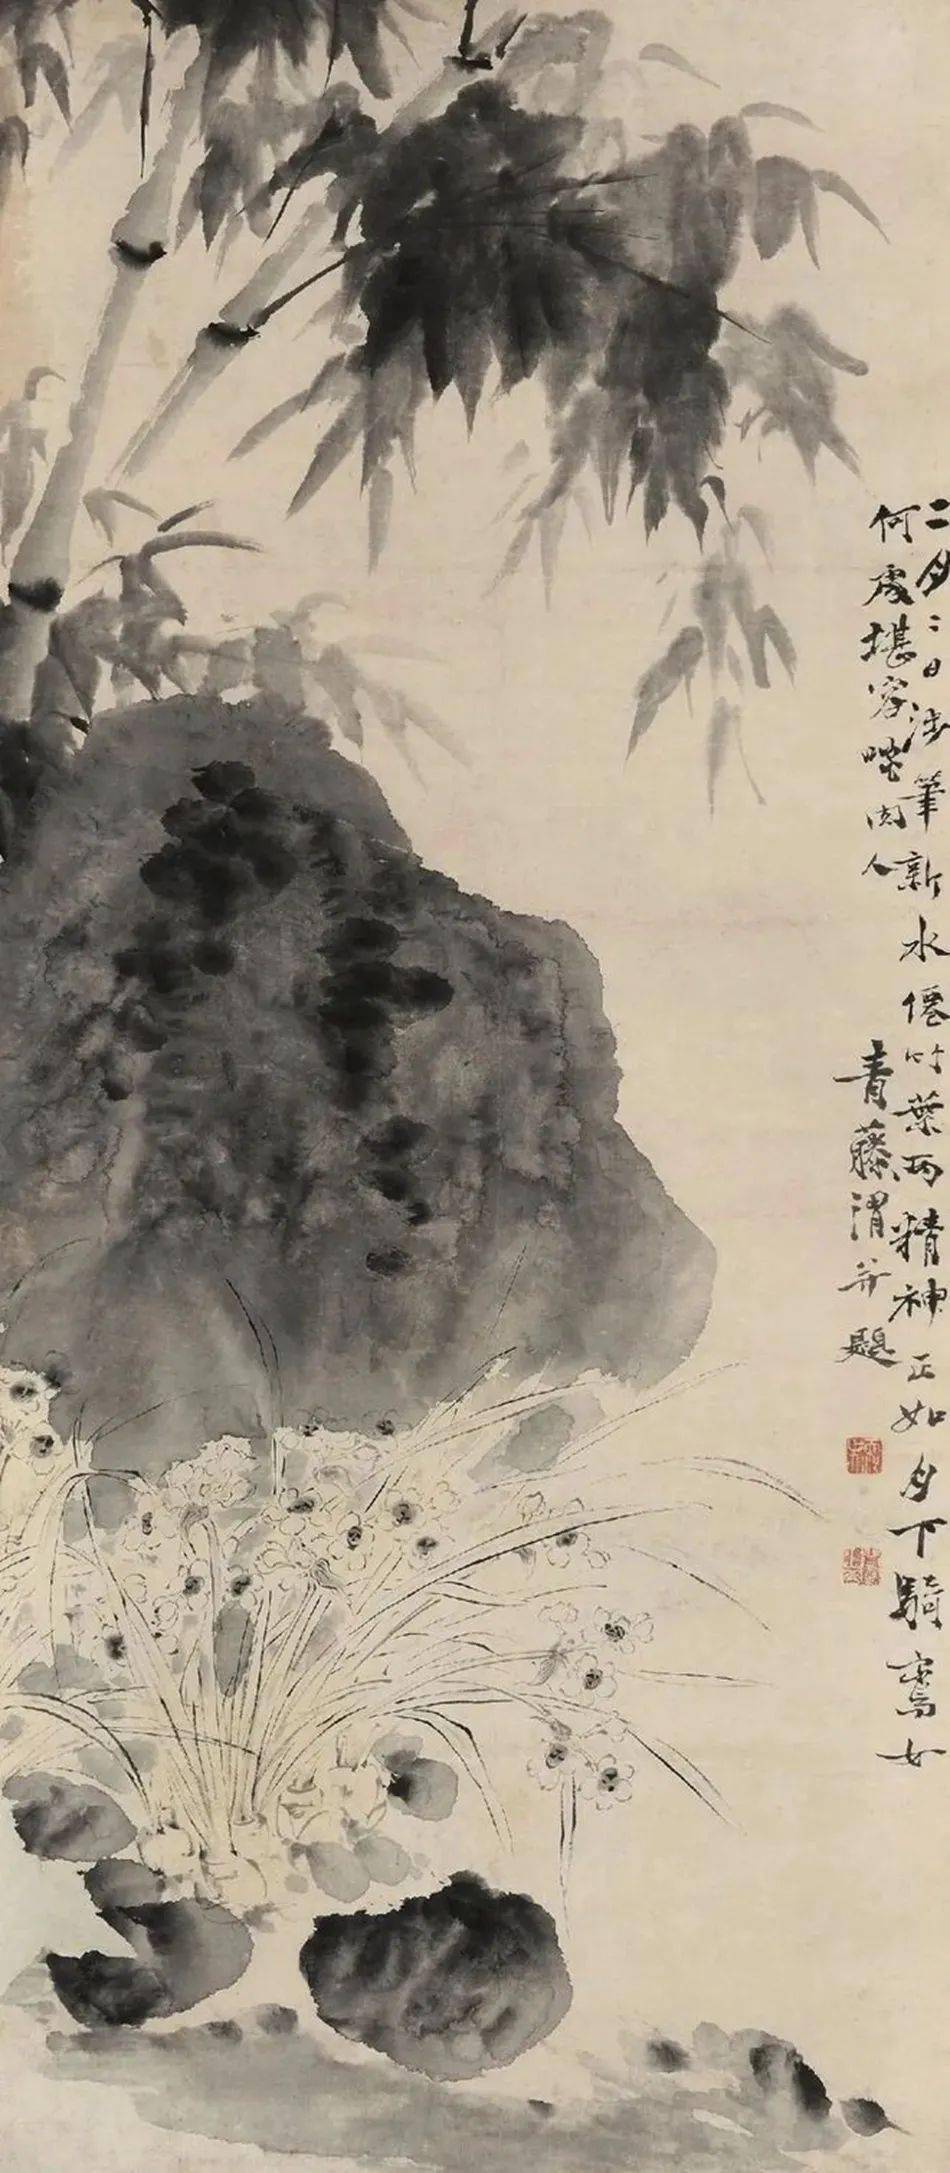 二月二日涉筆新水僊竹葉两精神正如月下騎鸞女
何處堪容啖肉人
青藤渭并題